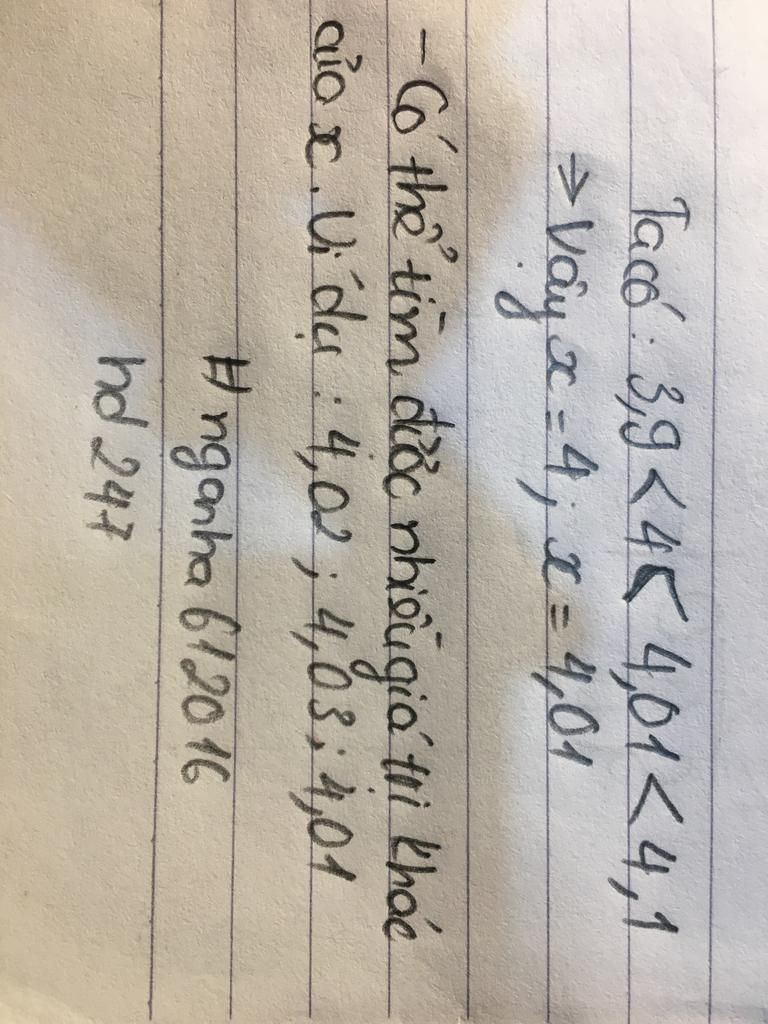 Ta có : 3,9 < 4 < 4,01 < 4,1
→ Vậy x = 4 ; x = 4,01
- Có thể tìm được nhiều giá trị khác
của x. Ví dụ : 4,02 ; 4,03 ; 4,01
# nganha612016
hd 247